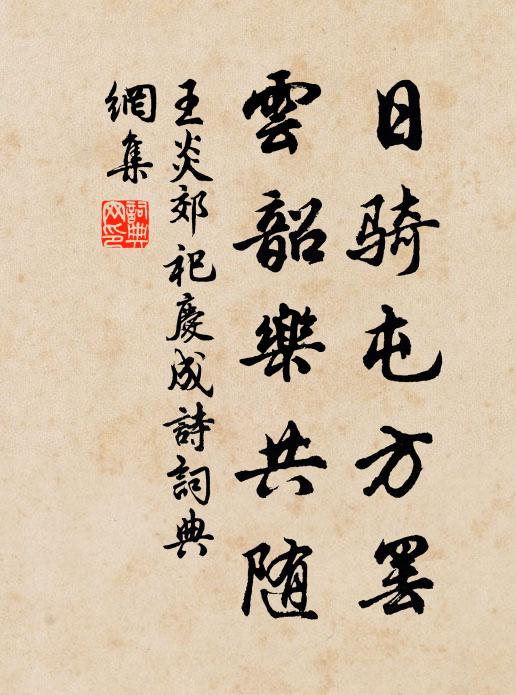 日騎屯方罷
雲韶樂共随
王炎郊祀慶成詩詞典
網集
詞典
网印